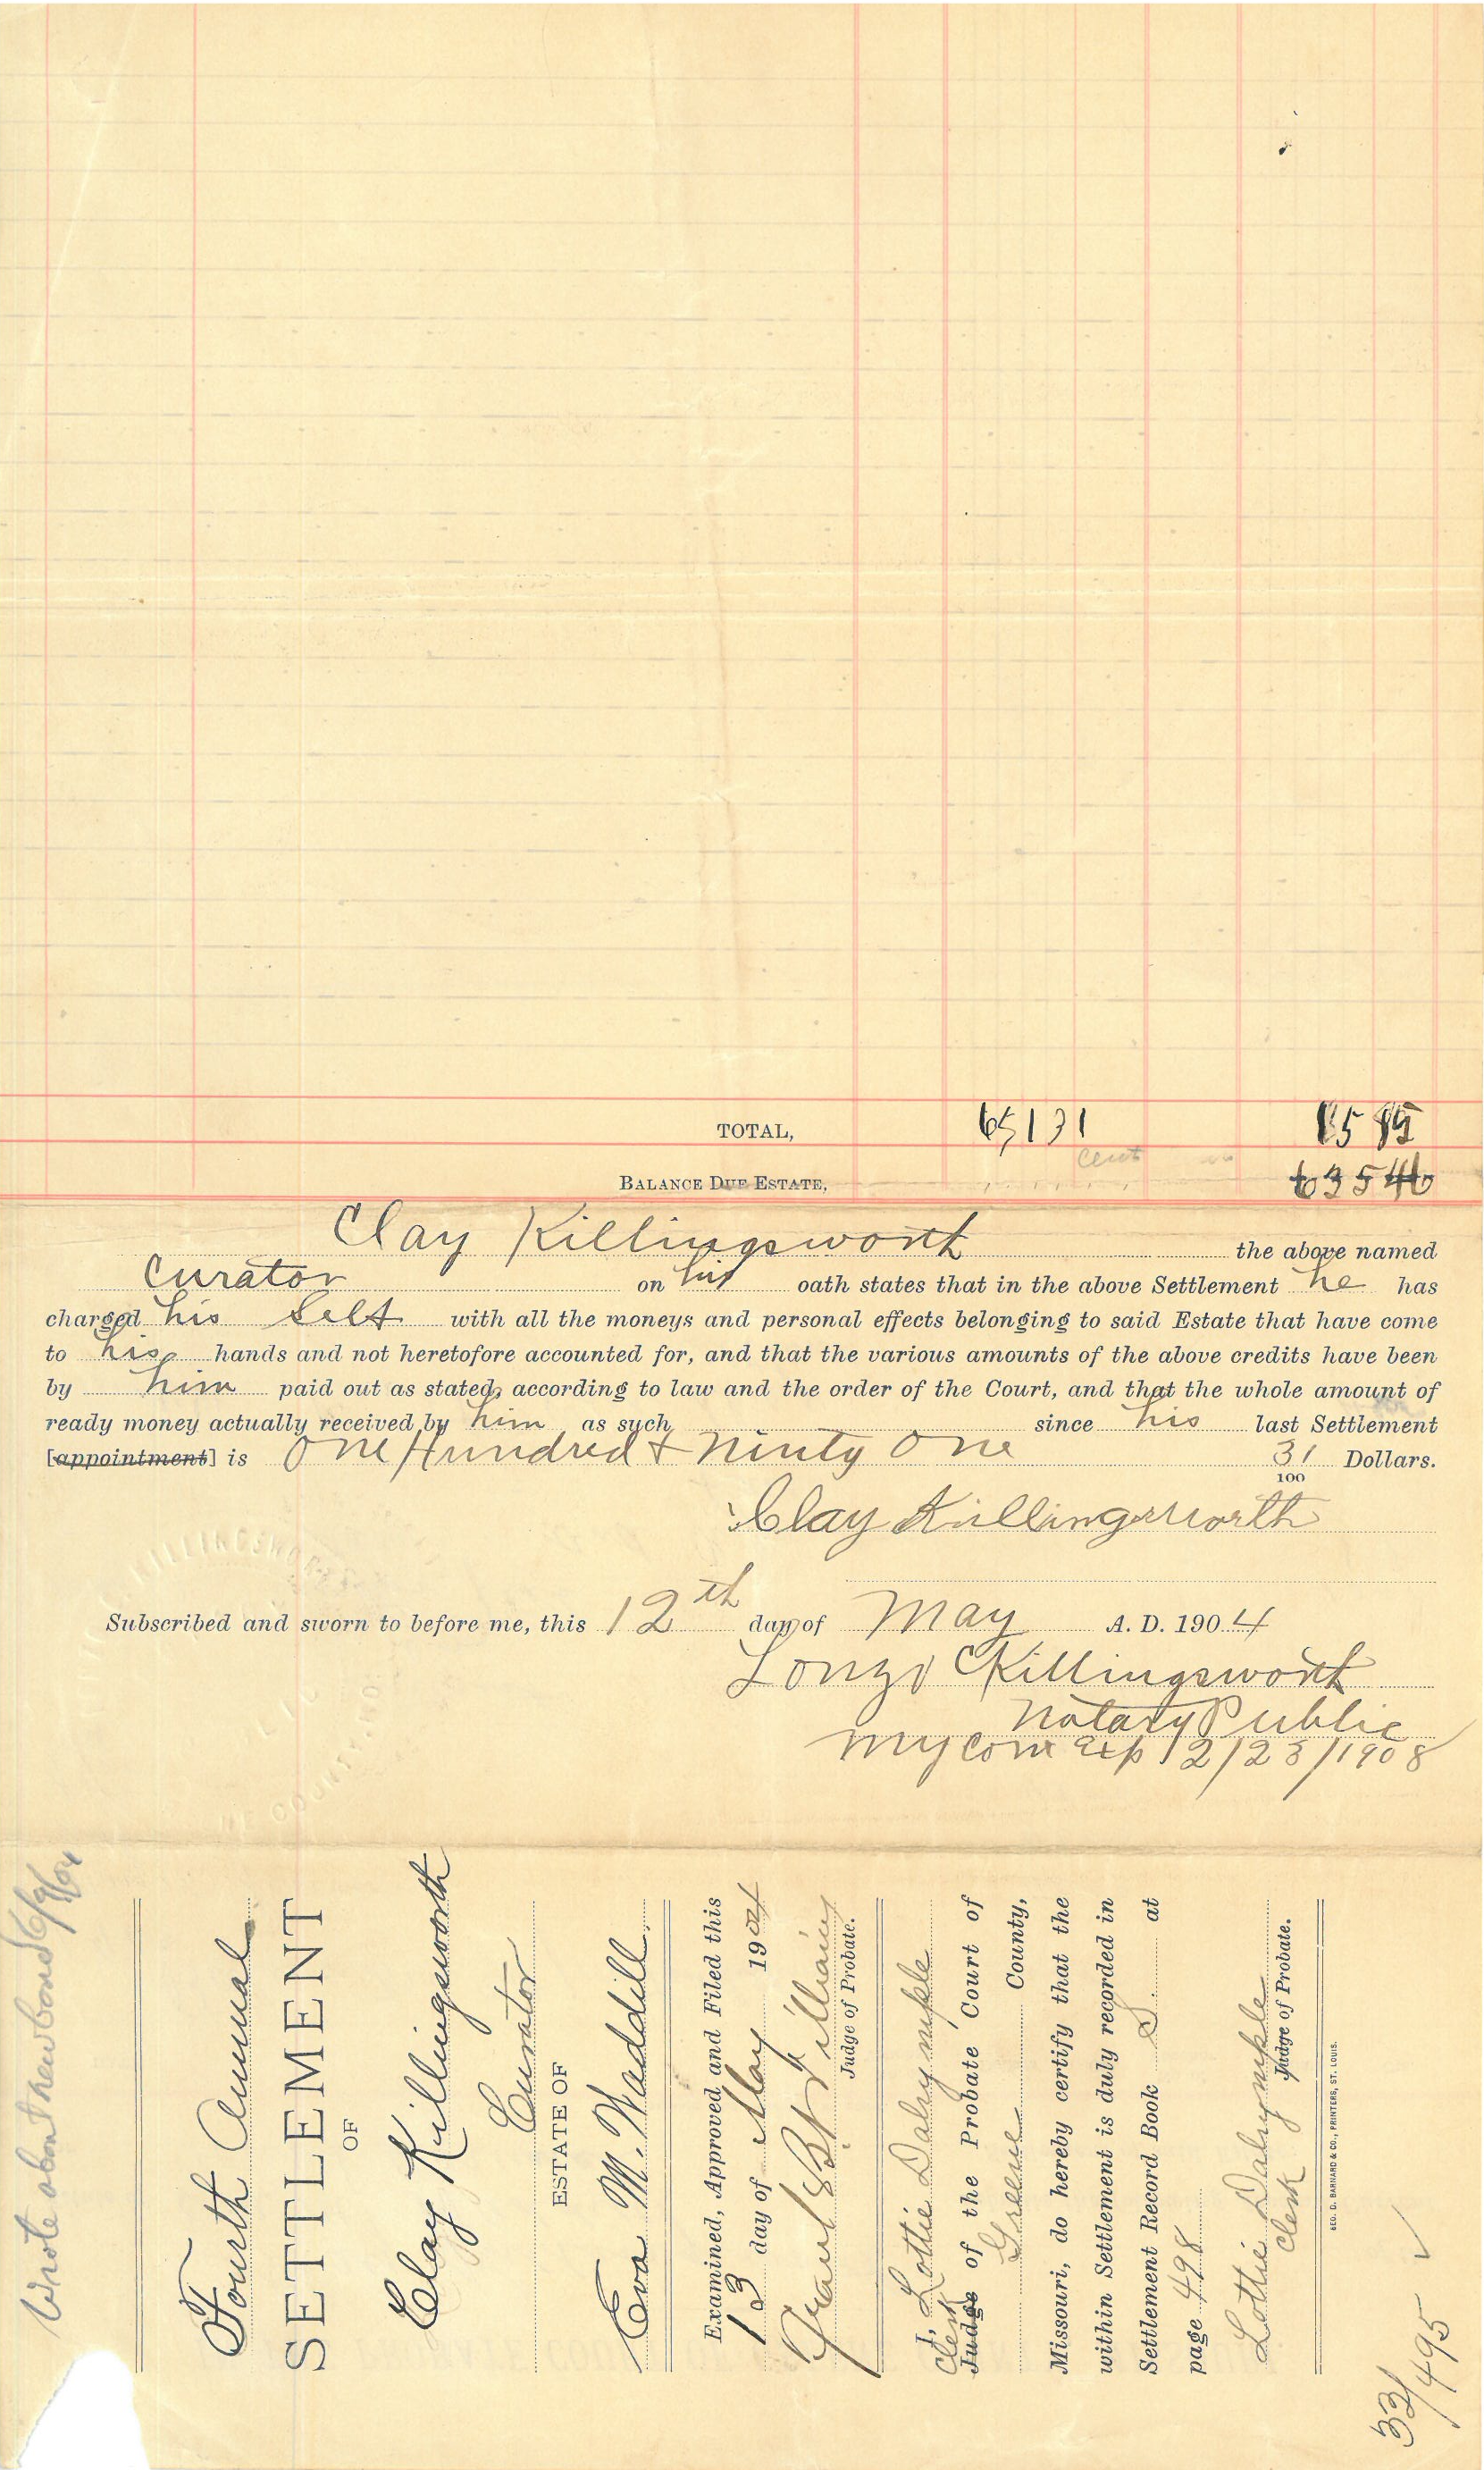 TOTAL, 651 31
cent
BALANCE DUE ESTATE,
Clay Killingsworth the above named
Curator on his oath states that in the above Settlement he has
charged his self with all the moneys and personal effects belonging to said Estate that have come
to his hands and not heretofore accounted for, and that the various amounts of the above credits have been
by him paid out as stated, according to law and the order of the Court, and that the whole amount of
ready money actually received by him as such since his last Settlement
[appointment] is One Hundred & Ninty One 31/100 Dollars.
Clay Killingsworth
KILLINGSWORTH
Subscribed and sworn to before me, this 12th day of May A. D. 1904
Lonzo Killingsworth
Notary Public
My Com Exp 12/23/1908
Wrote about new bond 6/9/04
Fourth Annual
SETTLEMENT
OF
Clay Killingsworth
Curator
ESTATE OF
Eva M. Waddill
Examined, Approved and Filed this
13 day of May 1904
Judge of Probate.
I, Lottie Dalrymple
Clerk
Judge of the Probate Court of
Greene County,
Missouri, do hereby certify that the
within Settlement is duly recorded in
Settlement Record Book S at
page 498
Lottie Dalrymple
Clerk
Judge of Probate.
GEO. D. BARNARD & CO., PRINTERS, ST. LOUIS.
32/495